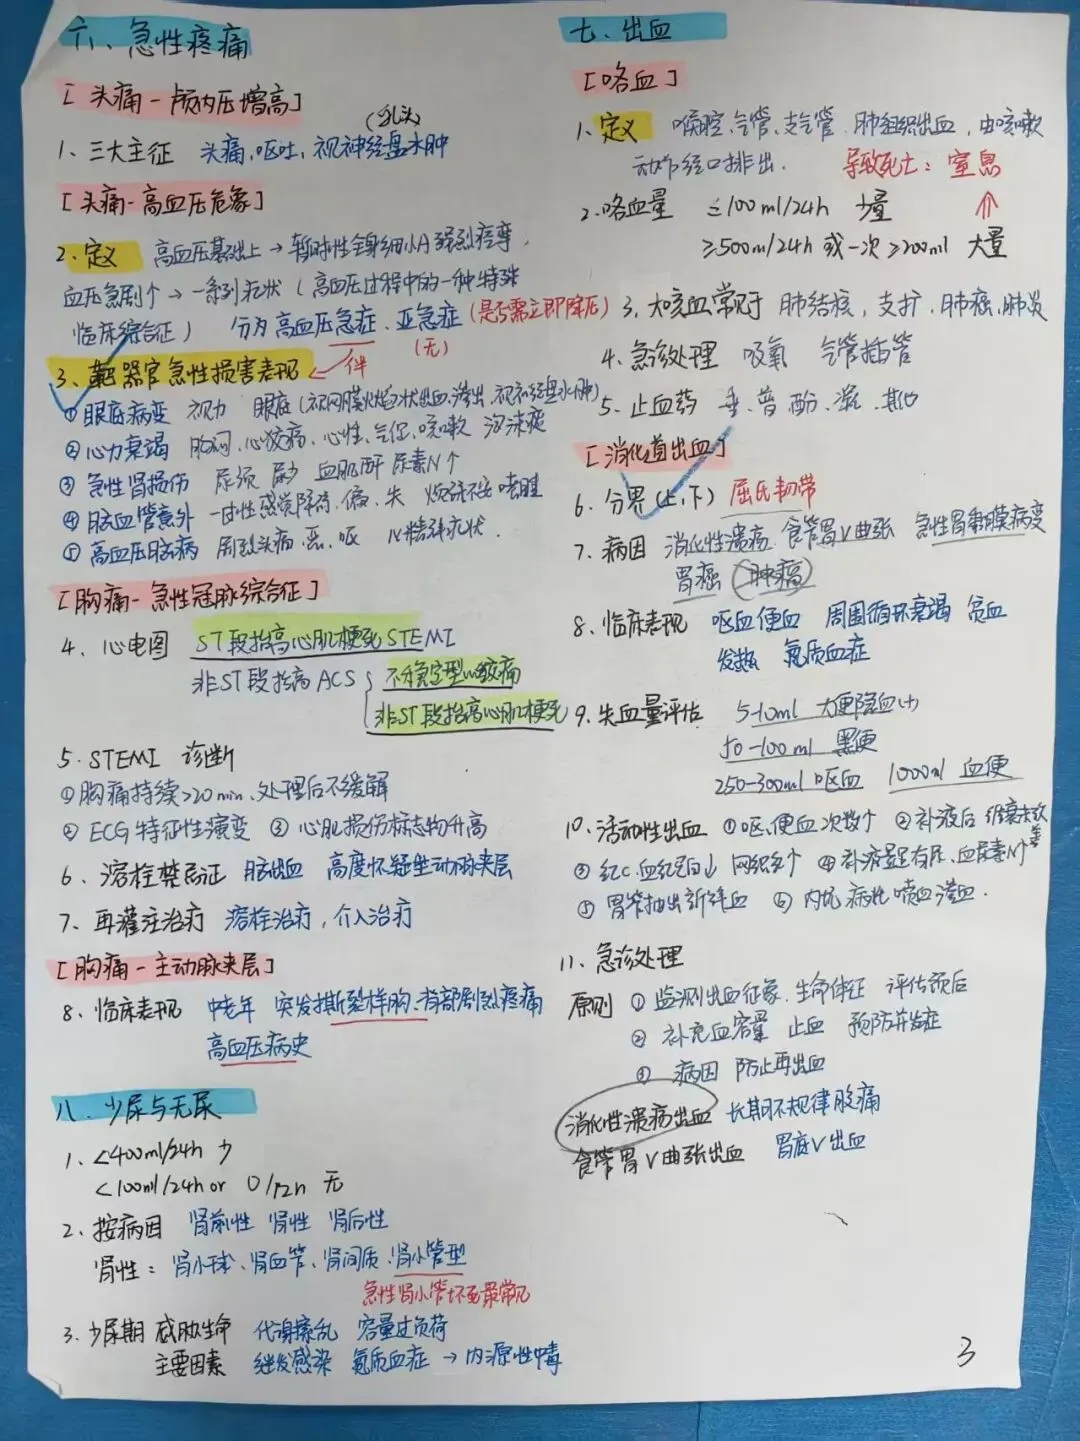 六、急性疼痛
[头痛-颅内压增高]
(乳头)
1、三大主征 头痛、呕吐、视神经盘水肿
[头痛-高血压危象]
2、定义 高血压基础上→暂时性全身细小A强烈痉挛
血压急剧↑→一系列症状(高血压过程中的一种特殊
临床综合征) 分为高血压急症、亚急症(是否需立即降压)
(无)
3、靶器官急性损害表现 伴
①眼底病变 视力 眼底(视网膜火焰状出血、渗出、视神经盘水肿)
②心力衰竭 胸闷、心绞痛、心悸、气促、咳嗽 泡沫痰
③急性肾损伤 尿频 尿少 血肌酐 尿素N↑
④脑血管意外 一过性感觉障碍、偏、失 烦躁不安 嗜睡
⑤高血压脑病 剧烈头痛、恶、呕 精神症状.
[胸痛-急性冠脉综合征]
4、心电图 ST段抬高心肌梗死STEMI
非ST段抬高ACS{不稳定型心绞痛
非ST段抬高心肌梗死
5.STEMI 诊断
①胸痛持续>20min、处理后不缓解
②ECG特征性演变 ③心肌损伤标志物升高
6、溶栓禁忌证 脑出血 高度怀疑主动脉夹层
7、再灌注治疗 溶栓治疗,介入治疗
[胸痛-主动脉夹层]
8、临床表现 中老年 突发撕裂样胸、背部剧烈疼痛
高血压病史
八、少尿与无尿
1、<400ml/24h 少
<100ml/24h or 0/12h 无
2、按病因 肾前性 肾性 肾后性
肾性:肾小球、肾血管、肾间质、肾小管型
急性肾小管坏死最常见
3、少尿期 威胁生命 代谢紊乱 容量过负荷
主要因素 继发感染 氮质血症→内源性中毒
七、出血
[咯血]
1、定义 喉腔、气管、支气管、肺组织出血,由咳嗽
动作经口排出. 导致死亡:窒息
2、咯血量 ≤100ml/24h 少量 ⇑
≥500ml/24h 或一次≥200ml 大量
3、大咳血常见于 肺结核,支扩,肺癌、肺炎
4、急诊处理 吸氧 气管插管
5、止血药 垂、普、酚、凝、其他
[消化道出血]
6、分界(上、下) 屈氏韧带
7、病因 消化性溃疡 食管胃V曲张 急性胃黏膜病变
胃癌(肿瘤)
8、临床表现 呕血便血 周围循环衰竭 贫血
发热 氮质血症
9、失血量评估 5-10ml 大便隐血(+)
50-100ml 黑便
250-300ml 呕血 1000ml 血便
10、活动性出血 ①呕、便血次数↑ ②补液后 衰未改
善
③红C、血红蛋白↓ 网织红↑ ④补液足有尿、血尿素N↑
⑤胃管抽出新鲜血 ⑥内镜病灶喷血渗血.
11、急诊处理
原则 ①监测出血征象、生命体征 评估预后
②补充血容量 止血 预防并发症
③病因 防止再出血
消化性溃疡出血 长期不规律腹痛
食管胃V曲张出血 胃底V出血
3